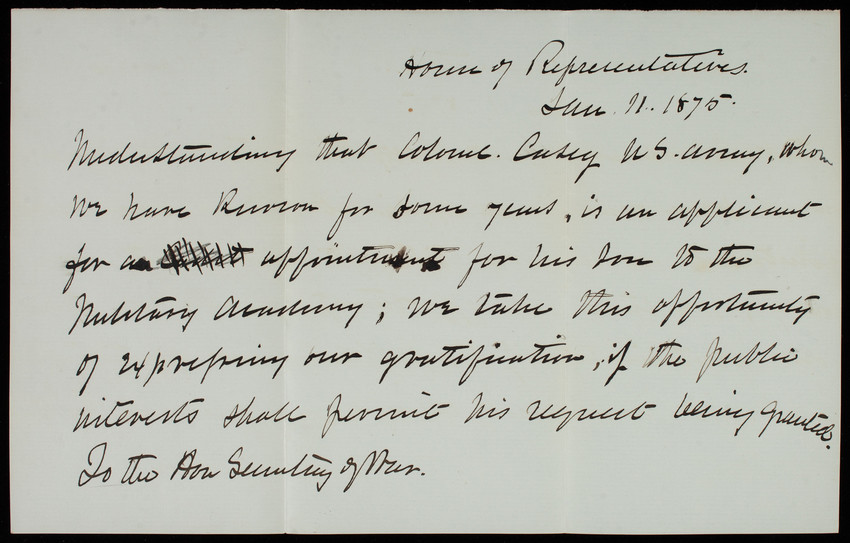 House of Representatives.
Jan. 11. 1875.
Understanding that Colonel. Casey U S. army, whom
we have known for some years, is an applicant
for an appointment for his son to the
Military Academy; we take this opportunity
of expressing our gratification, if the public
interests shall permit his request being granted.
To the Hon Secretary of War.